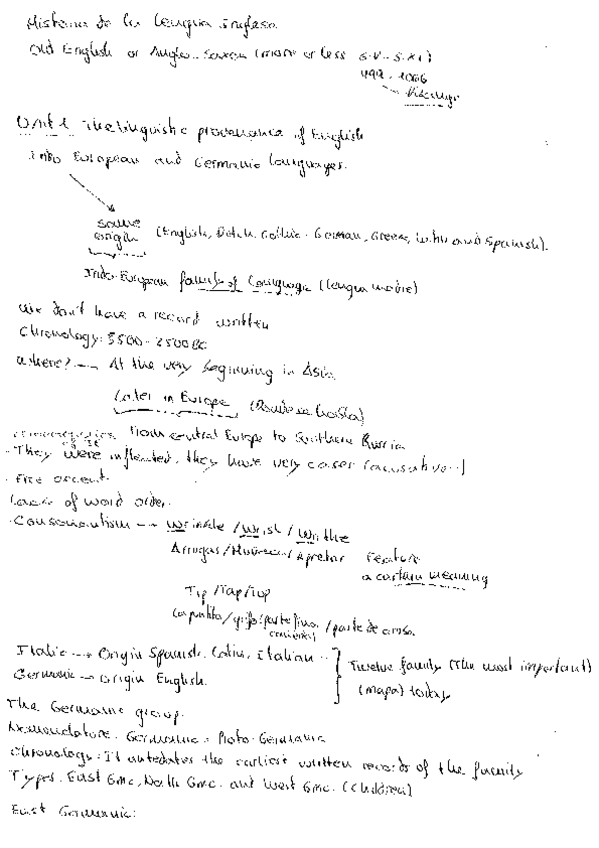 Historia de la lengua inglesa
Old English or Anglo-Saxon (more or less s.V - s.XI)
449 - 1066
Vikings
Unit 1. The linguistic provenance of English
Indo European and Germanic languages.
same origin (English, Dutch, Gothic, German, Greek, and Spanish).
Indo-European family of language (lengua madre)
We don't have a record written
Chronology: 5500 - 2500 BC
Where? --> At the very beginning in Asia
Later in Europe
From central Europe to Southern Russia
- They were inflected, they have very cases (accusative...)
. Free accent.
Lack of word order.
. Consonantism --> wrinkle / wrist / writhe
Arrugas / Muñeca / Apretar Feature
a certain meaning
Tip / Tap / Top
la puntita / grifo
Italic --> Origin Spanish, Latin, Italian ..
Germanic --> Origin English.
Twelve family (The most important)
(mapa) today
The Germanic group.
Nomenclature. Germanic = Proto-Germanic
Chronology: It antedates the earliest written records of the family
Types. East Gmc, North Gmc. and West Gmc. (Children)
East Germanic: